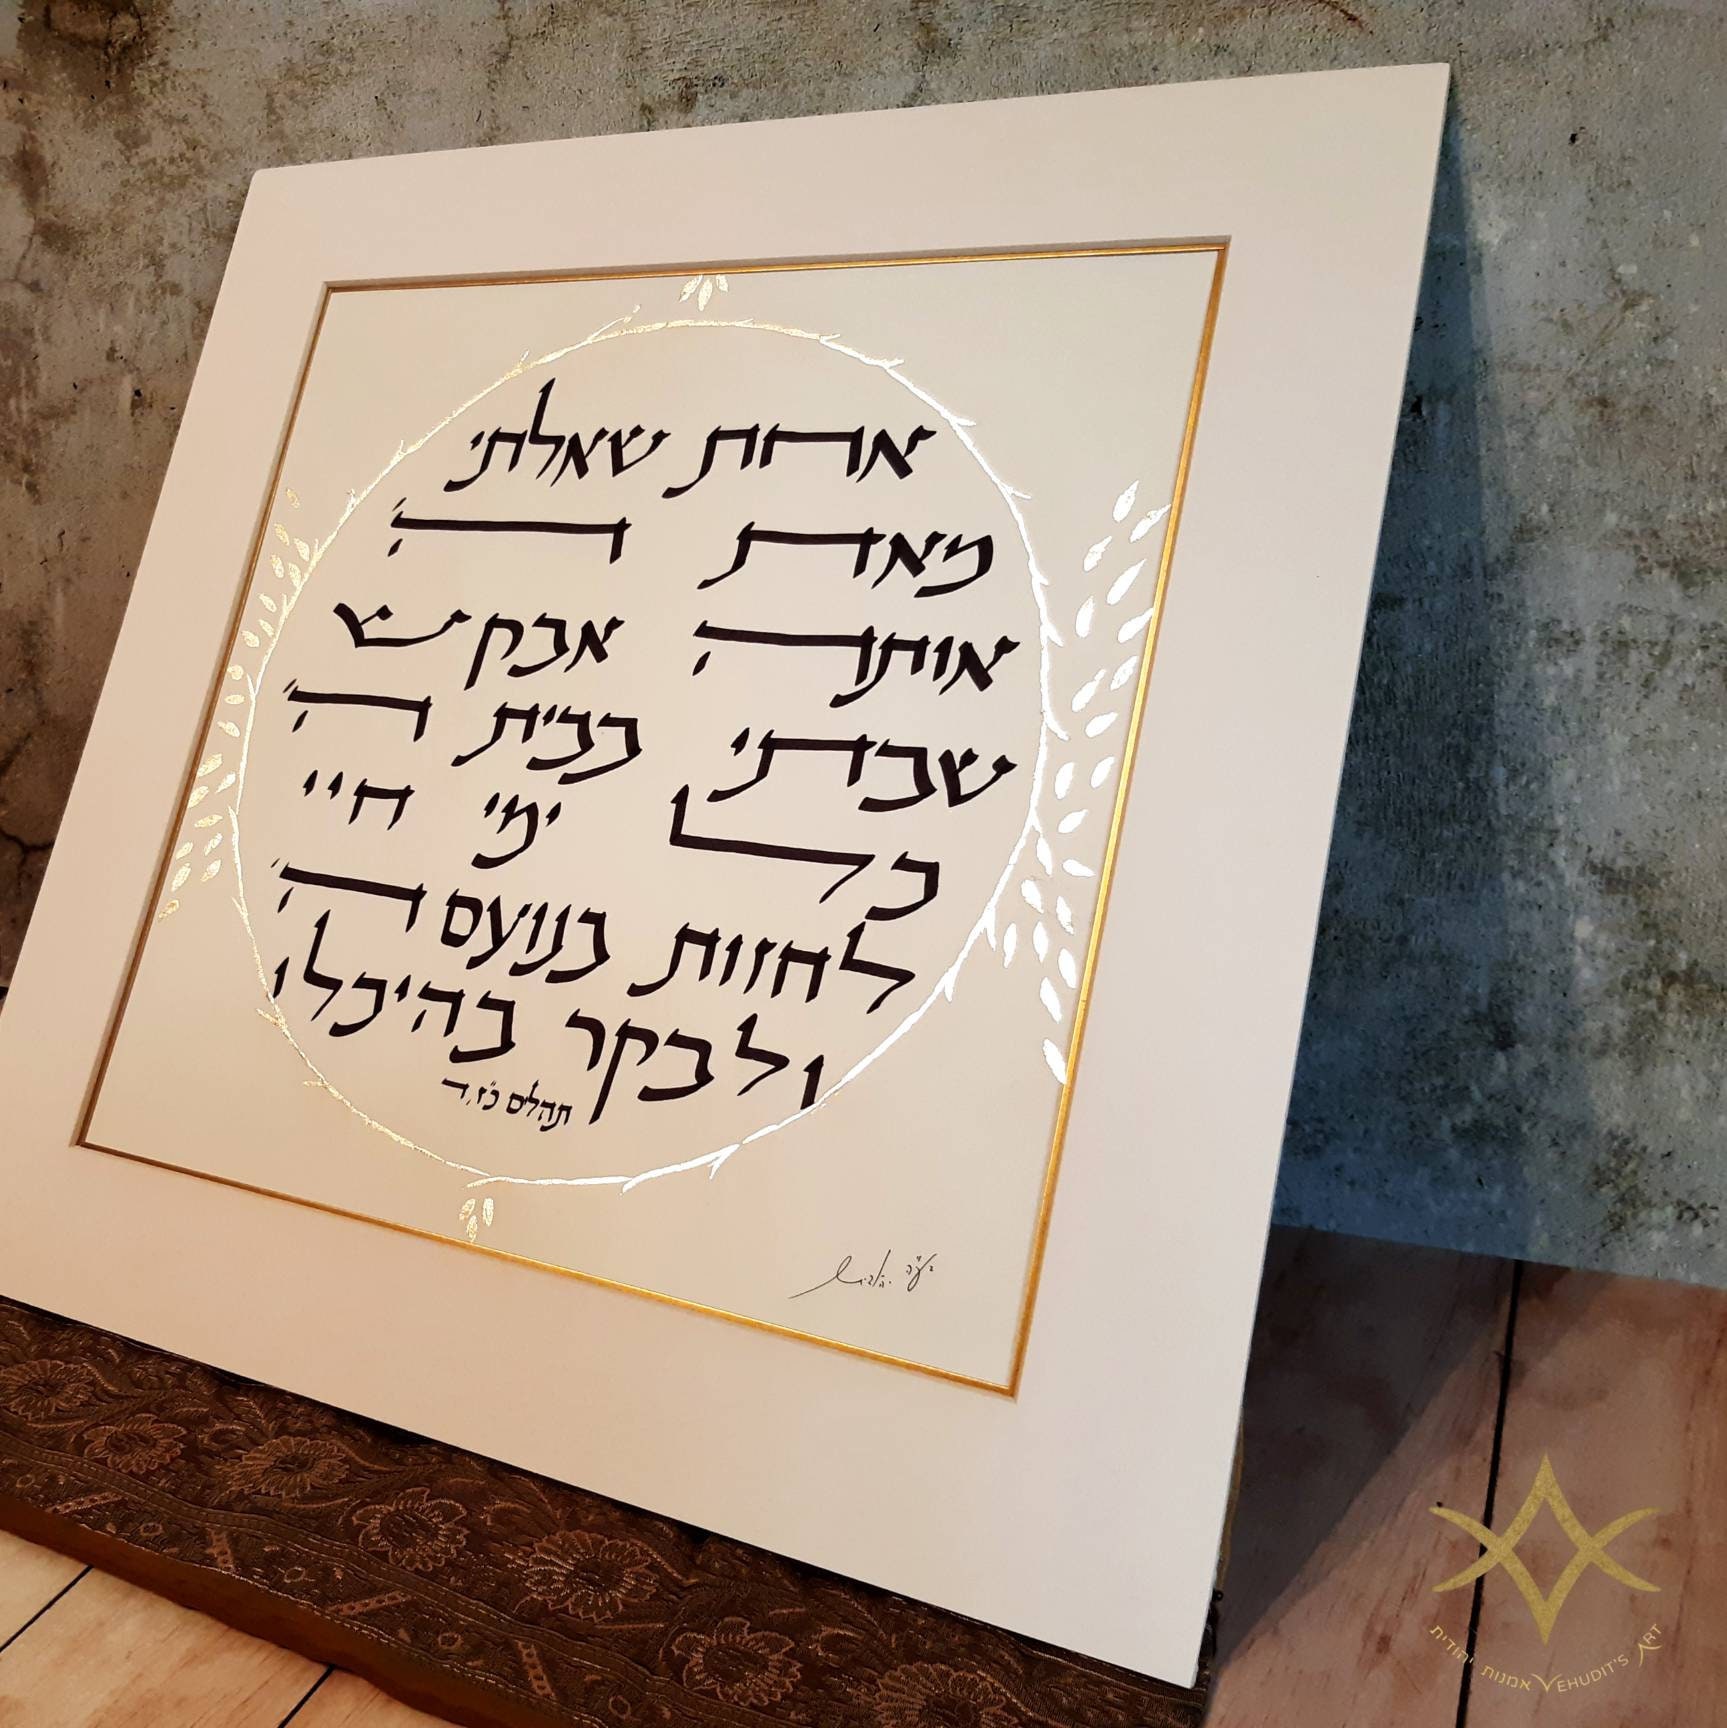 אחת שאלתי
מאת ה'
אותה אבקש
שבתי בבית ה'
כל ימי חיי
לחזות בנועם ה'
ולבקר בהיכלו
תהלים כ"ז, ד
בע"ה
אמנות יהודית YEHUDIT'S ART